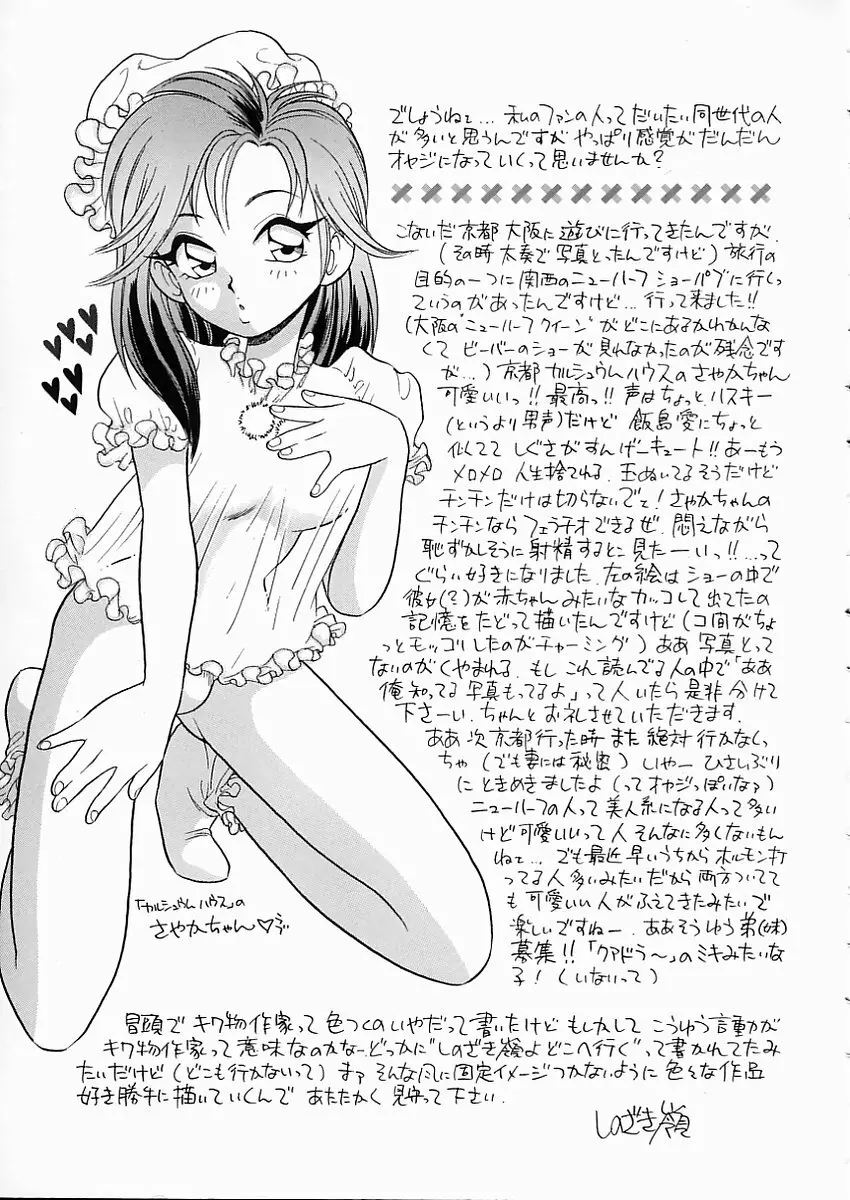 でしょうねェ… 私のファンの人ってだいたい同世代の人
が多いと思うんですが やっぱり感覚がだんだん
オヤジになっていくって思いませんか?
こないだ京都 大阪に遊びに行ってきたんですが、
(その時 太秦で写真とったんですけど) 旅行の
目的の一つに関西のニューハーフショーパブに行くっ
ていうのがあったんですけど…行って来ました!!
(大阪の"ニューハーフクイーン"がどこにあるかわかんな
くて ビーバーのショーが見れなかったのが残念です
が…) 京都カルシュウムハウスのさやかちゃん
可愛いいっ!! 最高っ!! 声はちょっとハスキー
(というより男声)だけど 飯島愛にちょっと
似てて しぐさがすんげーキュート!! あーもう
メロメロ 人生捨てれる、玉ぬいてるそうだけど
チンチンだけは切らないでェ! さやかちゃんの
チンチンなら フェラチオできるぜ、悶えながら
恥ずかしそうに射精するとこ見たーいっ!!…って
ぐらい好きになりました、左の絵はショーの中で
彼女(?)が赤ちゃんみたいなカッコして出てたの
記憶をたどって描いたんですけど(コ間がちょ
っとモッコリしたのがチャーミング) ああ 写真とって
ないのがくやまれる、もし これ読んでる人の中で「ああ
俺知ってる写真もってるよ」って人いたら是非分けて
下さーい、ちゃんとお礼させていただきます、
ああ 次京都行った時また絶対行かなくっ
ちゃ (でも妻には秘密) いやー ひさしぶり
に ときめきましたよ (ってオヤジっぽいなァ)
ニューハーフの人って美人系になる人って多い
けど可愛いいって人 そんなに多くないもん
ねェ… でも最近早いうちからホルモン打
ってる人多いみたいだから 両方ついてて
も可愛いい人がふえてきたみたいで
楽しいですねー、ああそうゆう弟(妹)
募集!!「クアドラ〜」のミキみたいな
子! (いないって)
「カルシュウムハウス」の
さやかちゃん♡
冒頭で キワ物作家って色つくのいやだって書いたけど もしかして こうゆう言動が
キワ物作家って意味なのかなー、どっかに"しのざき嶺よどこへ行く"って書かれてたみ
たいだけど(どこも行かないって) まァ そんな風に固定イメージつかないように 色々な作品
好き勝手に描いていくんで あたたかく見守って下さい、
しのざき嶺